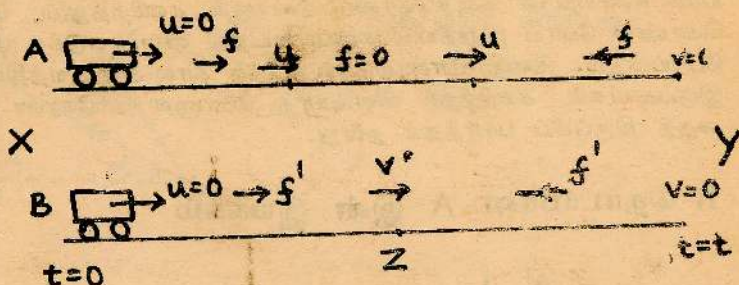 u=0
A f u f=0 u f v=0
X Y
B u=0 f' v' f' v=0
t=0 Z t=t